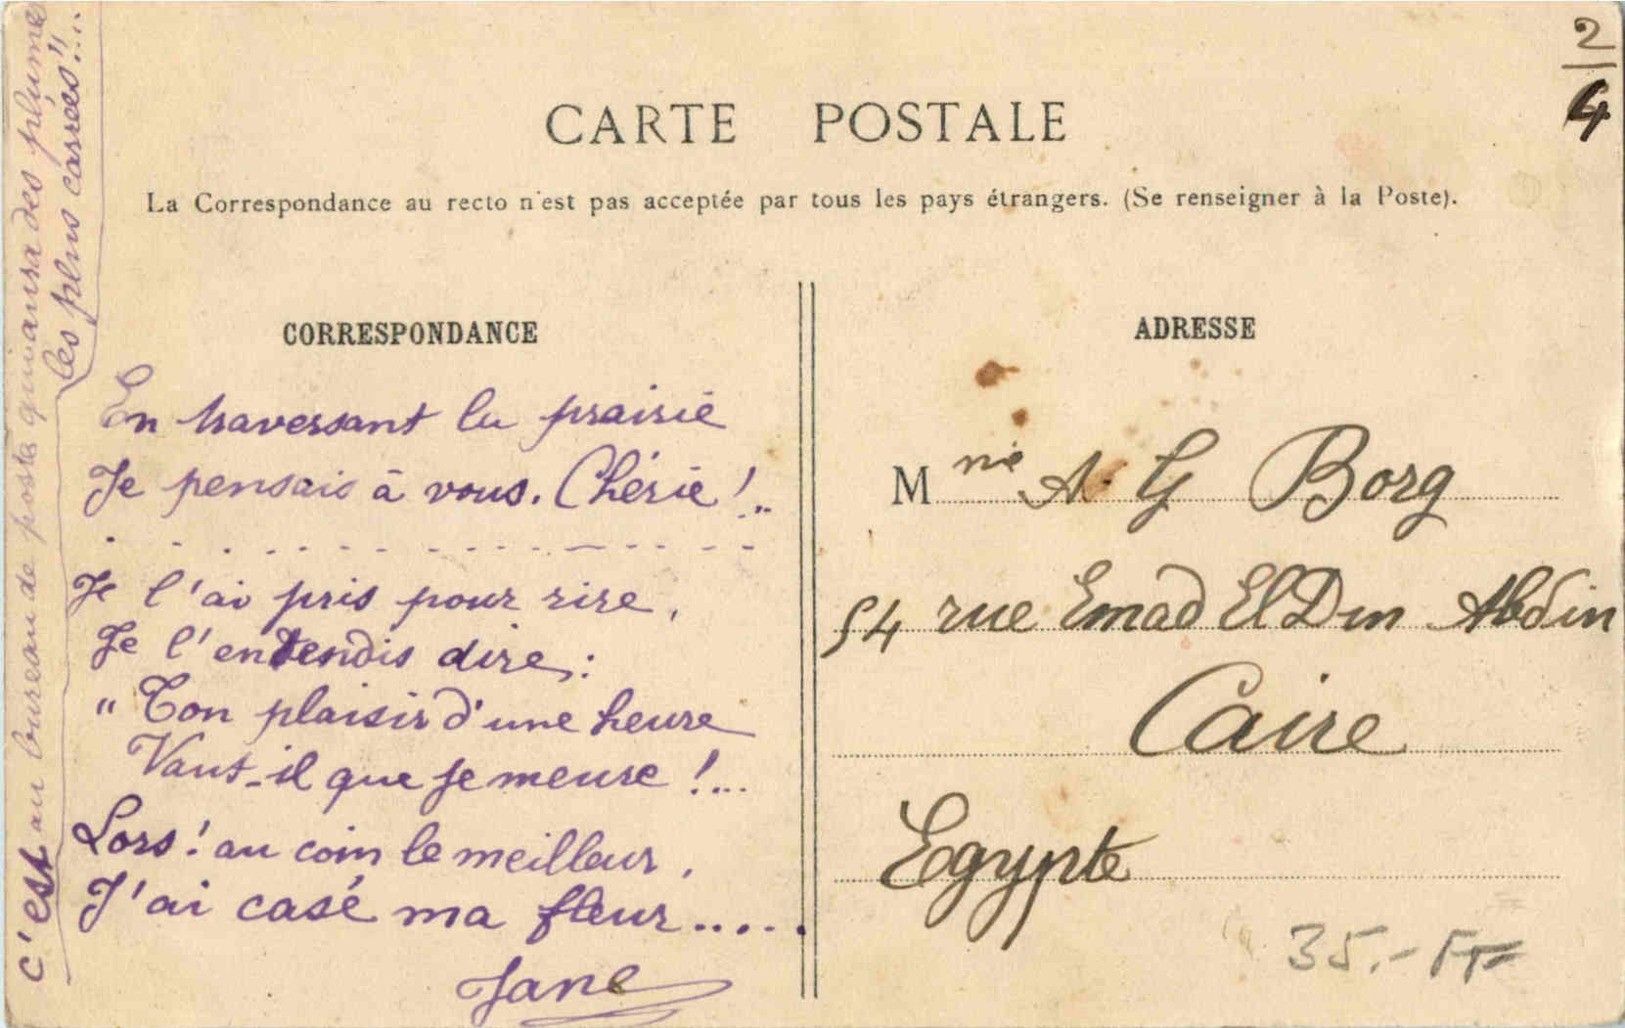 CARTE POSTALE
2
4
La Correspondance au recto n'est pas acceptée par tous les pays étrangers. (Se renseigner à la Poste).
CORRESPONDANCE
En traversant la prairie
Je pensais à vous. Chérie !..
Je l'ai pris pour rire,
Je l'entendis dire :
"Ton plaisir d'une heure
Vaut-il que je meure !...
Lors ! au coin le meilleur,
J'ai casé ma fleur.....
Jane
c'est au bureau de poste qui aura des plume
les plus carrées"!...
ADRESSE
Mme A. G Borg
54 rue Emad El Din Abdin
Caire
Egypte
35.- FF